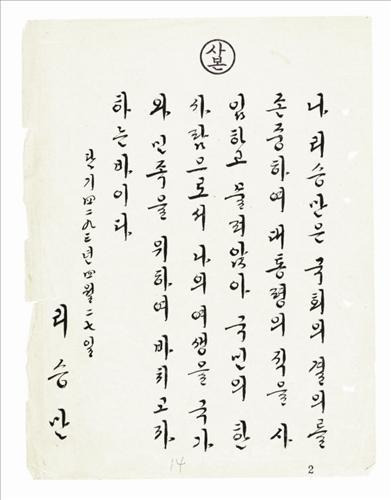 사본
나 리승만은 국회의 결의를
존중하여 대통령의 직을 사
임하고 물러앉아 국민의 한
사람으로서 나의 여생을 국가
와 민족을 위하여 바치고자
하는 바이다
단기 四二九三년 四월 二七일
리승만
14
2